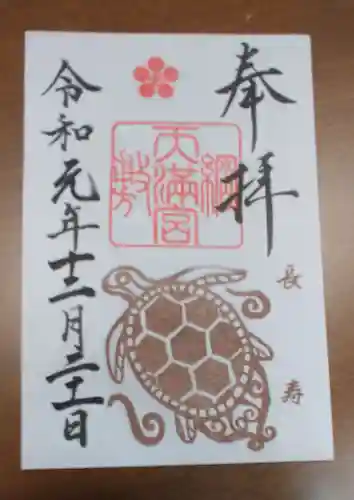 奉拝
綱敷天満宮
長寿
令和元年十二月三十一日